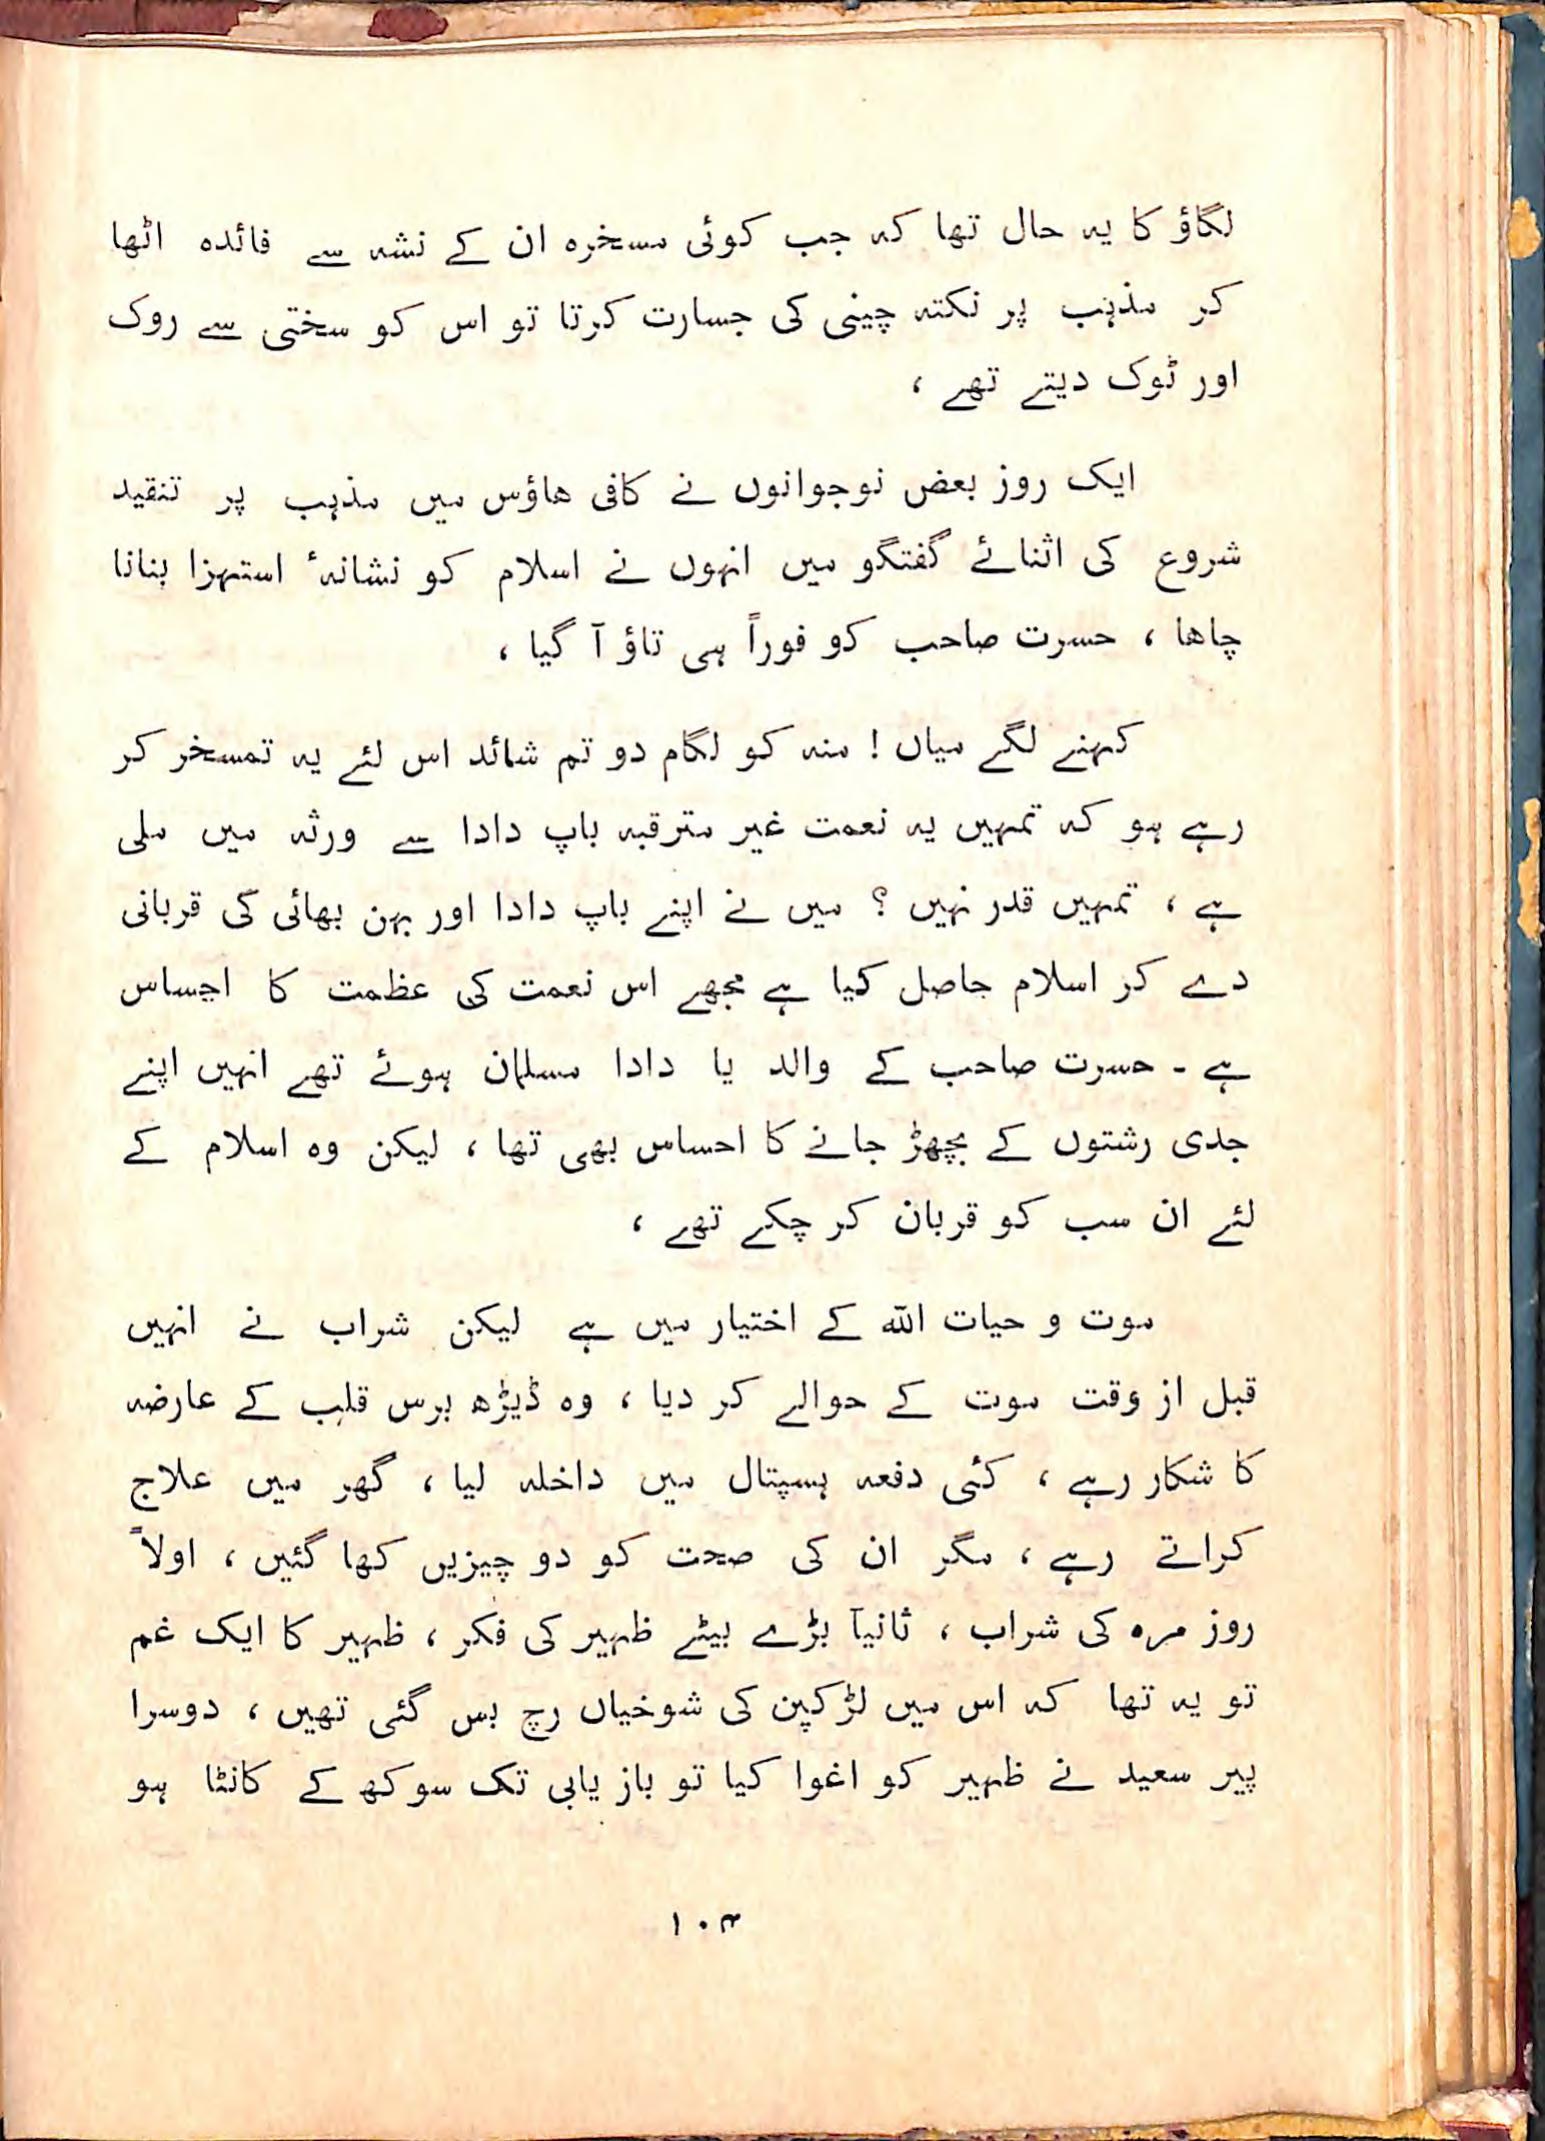 لگاؤ کا یہ حال تھا کہ جب کوئی مسخرہ ان کے نشہ سے فائدہ اٹھا
کر مذہب پر نکتہ چینی کی جسارت کرتا تو اس کو سختی سے روک
اور ٹوک دیتے تھے ،
ایک روز بعض نوجوانوں نے کافی ھاؤس میں مذہب پر تنقید
شروع کی اثنائے گفتگو میں انہوں نے اسلام کو نشانہٴ استہزا بنانا
چاھا ، حسرت صاحب کو فوراً ہی تاؤ آ گیا ،
کہنے لگے میاں ! منہ کو لگام دو تم شائد اس لئے یہ تمسخر کر
رہے ہو کہ تمہیں یہ نعمت غیر مترقبہ باپ دادا سے ورثہ میں ملی
ہے ، تمہیں قدر نہیں ؟ میں نے اپنے باپ دادا اور بہن بھائی کی قربانی
دے کر اسلام حاصل کیا ہے مجھے اس نعمت کی عظمت کا احساس
ہے ۔ حسرت صاحب کے والد یا دادا مسلمان ہوئے تھے انہیں اپنے
جدی رشتوں کے بچھڑ جانے کا احساس بھی تھا ، لیکن وہ اسلام کے
لئے ان سب کو قربان کر چکے تھے ،
موت و حیات اللہ کے اختیار میں ہے لیکن شراب نے انہیں
قبل از وقت موت کے حوالے کر دیا ، وہ ڈیڑھ برس قلب کے عارضہ
کا شکار رہے ، کئی دفعہ ہسپتال میں داخلہ لیا ، گھر میں علاج
کراتے رہے ، مگر ان کی صحت کو دو چیزیں کھا گئیں ، اولاً
روز مرہ کی شراب ، ثانیاً بڑے بیٹے ظہیر کی فکر ، ظہیر کا ایک غم
تو یہ تھا کہ اس میں لڑکپن کی شوخیاں رچ بس گئی تھیں ، دوسرا
پیر سعید نے ظہیر کو اغوا کیا تو باز یابی تک سوکھ کے کانٹا ہو
۱۰۳